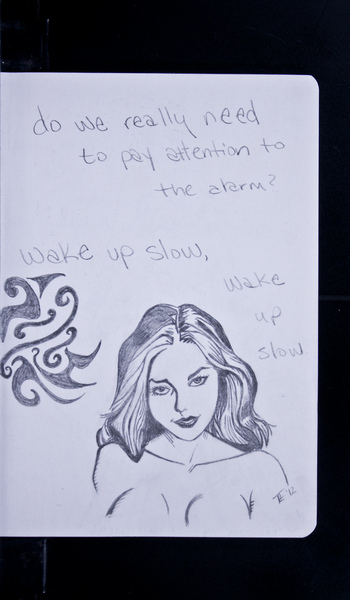 do we really need
to pay attention to
the alarm?
wake up slow,
wake
up
slow
TE '12